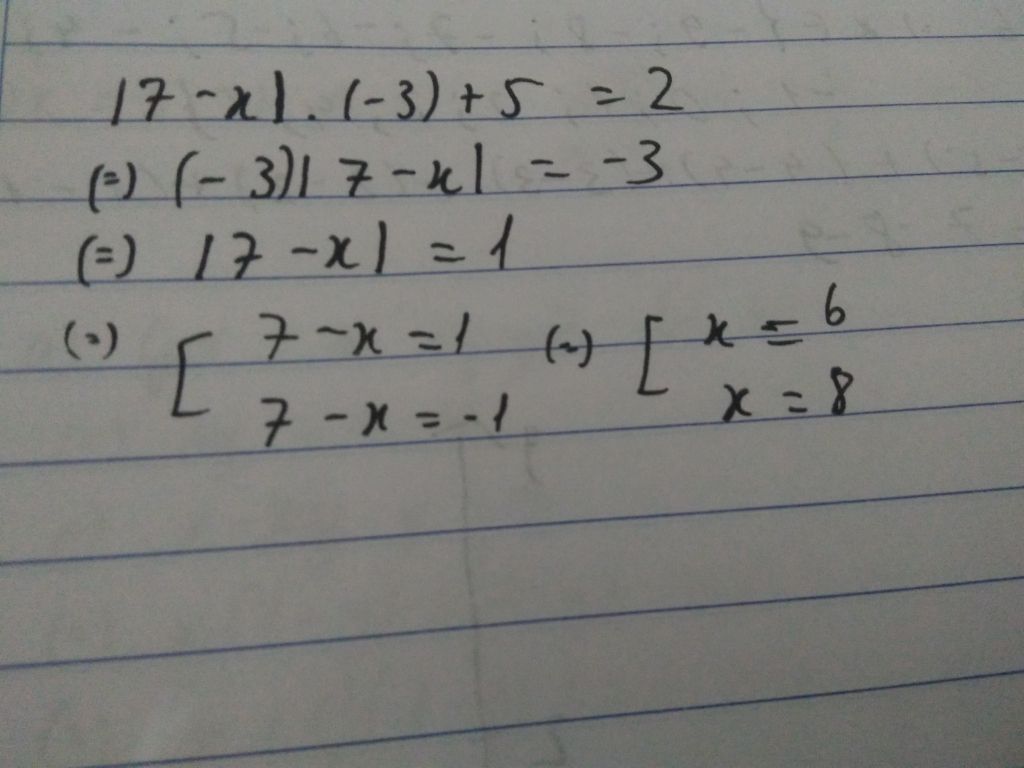 |7 - x| . (-3) + 5 = 2
(=) (-3)|7 - x| = -3
(=) |7 - x| = 1
(=) [ 7 - x = 1 (=) [ x = 6
7 - x = -1 x = 8